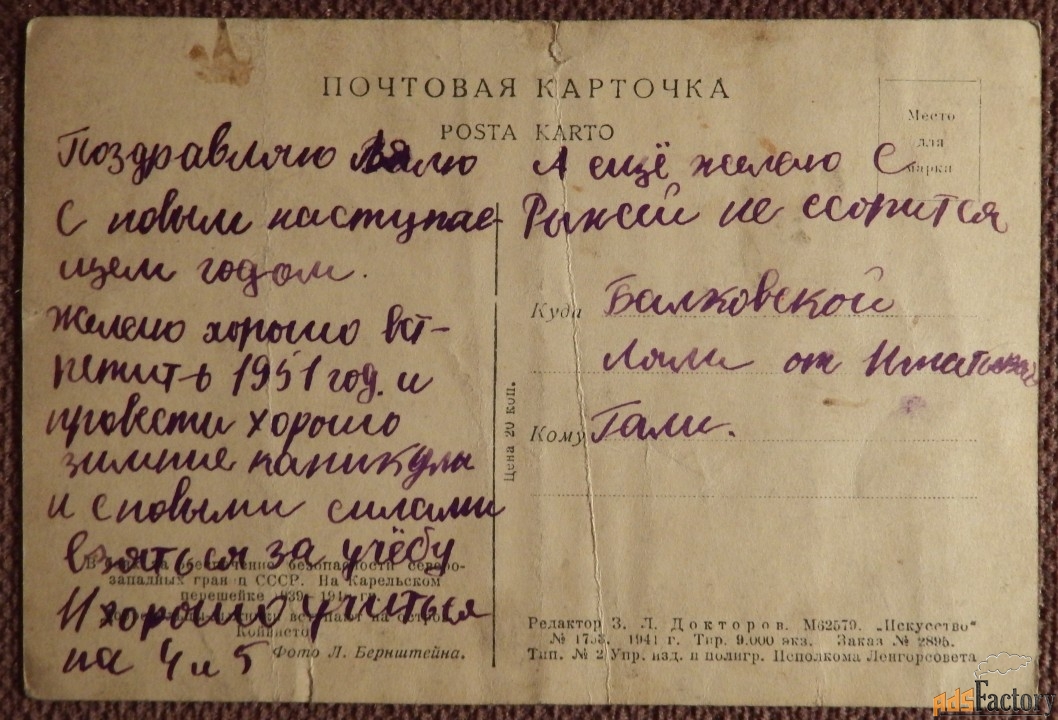 ПОЧТОВАЯ КАРТОЧКА
POSTA KARTO
Место
для
марки
Поздравляю Лялю
С новым наступае-
щем годом.
Желаю хорошо вст-
ретить 1951 год. и
провести хорошо
зимние каникулы
и с новыми силами
взяться за учёбу
И хорошо учиться
на 4 и 5
А ещё желаю С
Рыжей не ссорится
Куда Балковской
Ляли от
Кому Гали.
Цена 20 коп.
обеспечение безопасности северо-
западных границ СССР. На Карельском
перешейке 1939–1940 гг.
вступают на остров
Койвисто
Фото Л. Бернштейна.
Редактор З. Л. Докторов. М62579. „Искусство“
№ 1941 г. Тир. 9.000 экз. Заказ № 2895.
Тип. № 2 Упр. изд. и полигр. Исполкома Ленгорсовета
AdsFactory